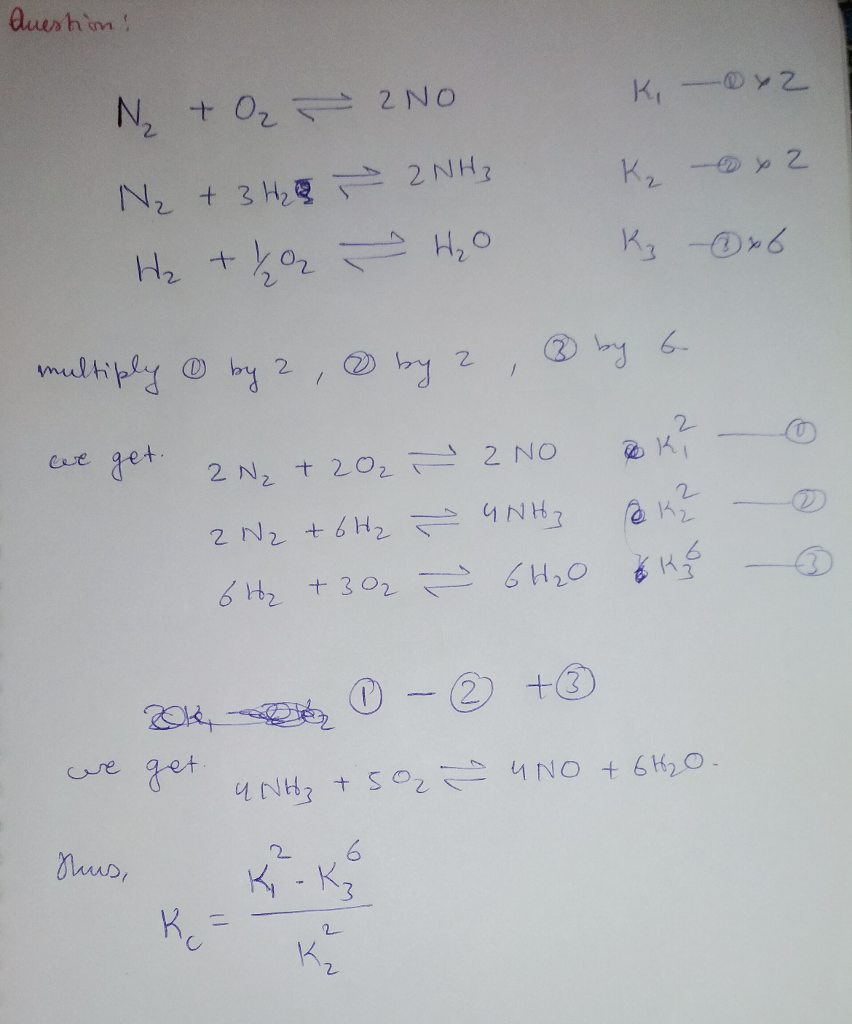 Question:
N₂ + O₂ ⇌ 2NO K₁ —①×2
N₂ + 3H₂ ⇌ 2NH₃ K₂ —②×2
H₂ + ½O₂ ⇌ H₂O K₃ —③×6
multiply ① by 2, ② by 2, ③ by 6
we get. 2N₂ + 2O₂ ⇌ 2NO K₁² —①
2N₂ + 6H₂ ⇌ 4NH₃ K₂² —②
6H₂ + 3O₂ ⇌ 6H₂O K₃⁶ —③
① - ② + ③
we get. 4NH₃ + 5O₂ ⇌ 4NO + 6H₂O.
Thus,
K_c = (K₁² - K₃⁶) / K₂²